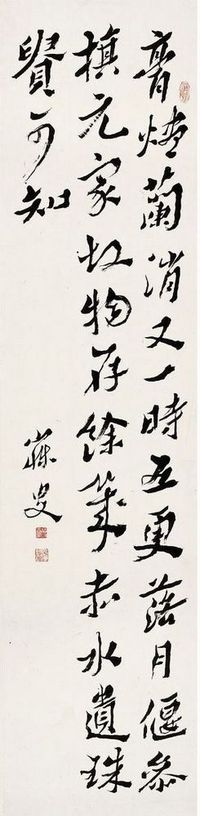 膏燼蘭消又一時五更落月偃參
旗元家故物存餘幾赤水遺珠
覺可知
寐叟